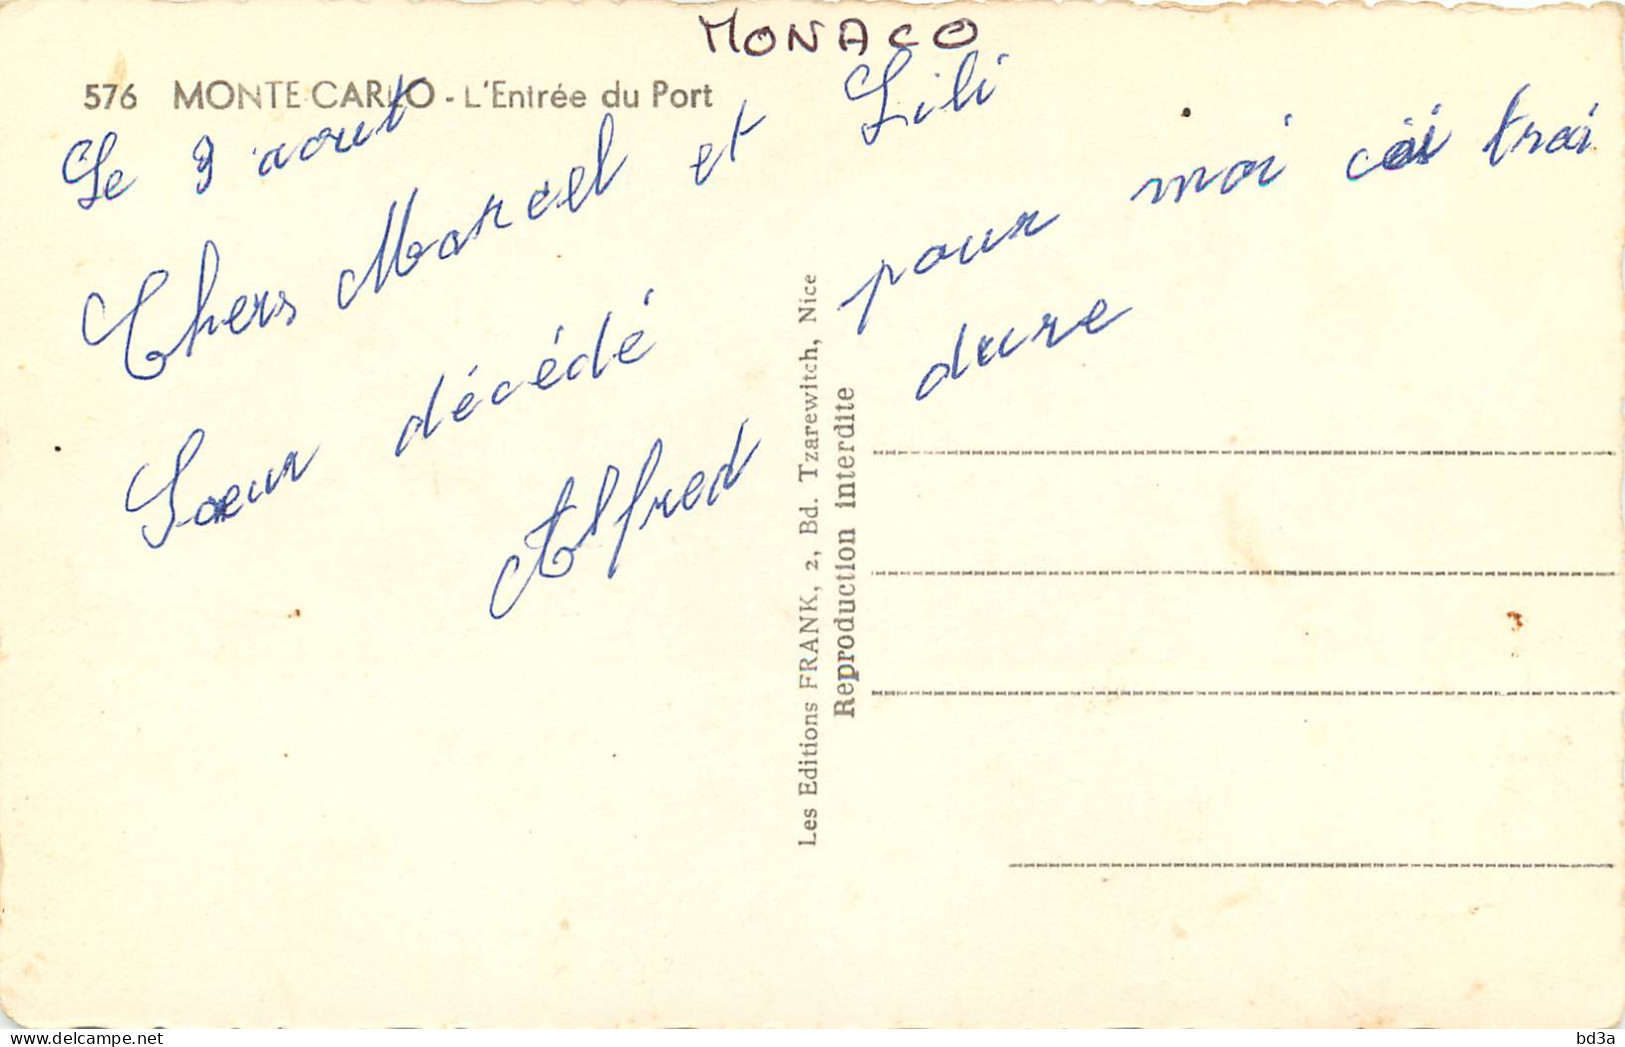 MONACO
576 MONTE-CARLO - L'Entrée du Port
Le 9 aout
Chers Marcel et Lili
Sœur décédé
Alfred
pour moi cői trai
dure
Les Editions FRANK, 2, Bd. Tzarewitch, Nice
Reproduction interdite
bd3a